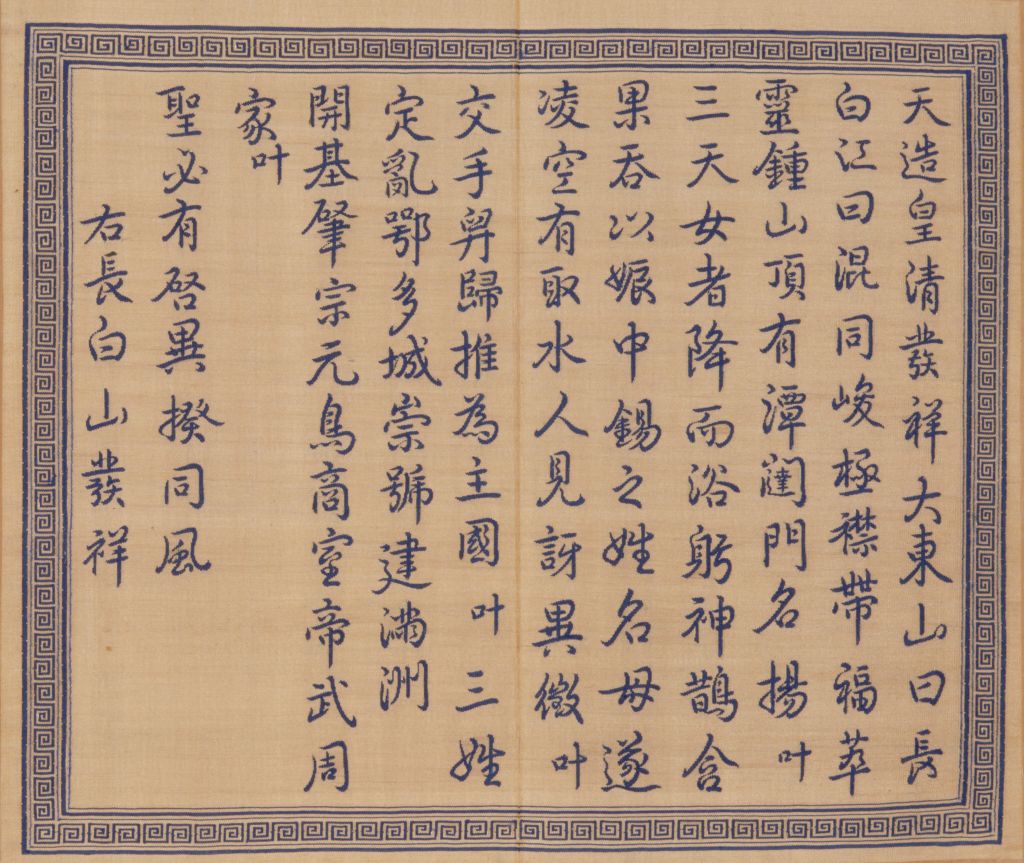 天造皇清發祥大東山曰長
白江曰混同峻極襟帶福萃
靈鍾山頂有潭闥門名揚叶
三天女者降而浴躬神鵲含
果吞以娠中錫之姓名母遂
凌空有取水人見訝異徵叶
交手舁歸推為主國叶三姓
定亂鄂多城崇號建滿洲
開基肇宗元鳥商室帝武周
家叶
聖必有啓異揆同風
右長白山發祥